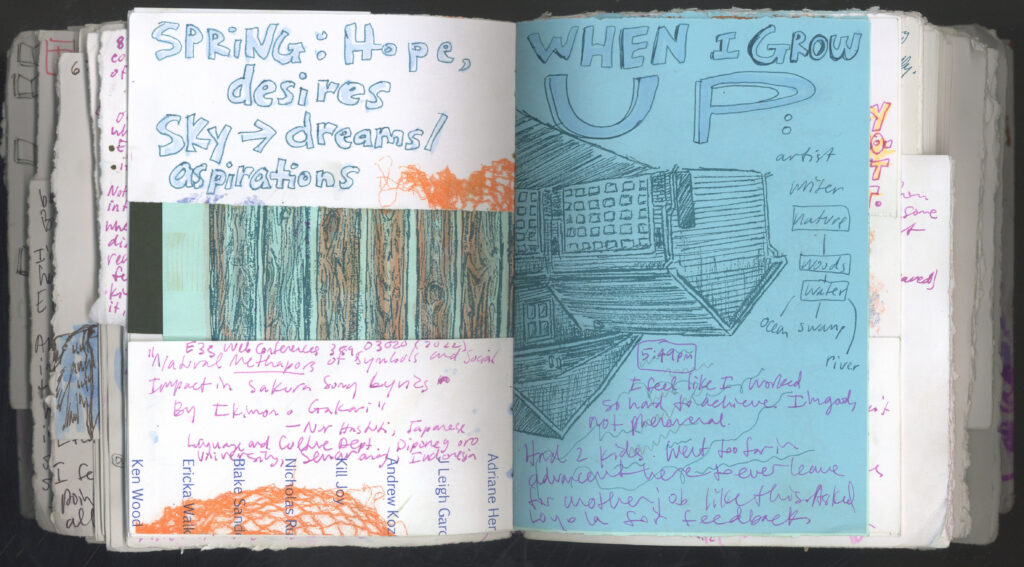 SPRiNG: Hope,
desires
Sky → dreams/
aspirations
E3S Web Conferences 359, 03020 (2022)
"Natural Methapors of Symbols and Social
Impact in Sakura Song Lyrics
By Ikimono Gakari"
— Nur Hastuti, Japanese
Language and Culture Dept., Diponegoro
University, Semarang Indonesia
Ken Wood
Ericka Walk
Blake Sand
Nicholas Ru
Kill Joy
Andrew Koz
Leigh Garc
Adriane Her
WHEN I GROW
UP:
artist
writer
nature
woods
water
ocean swamp
river
5:49pm
I feel like I worked
so hard to achieve. I'm good,
not phenomenal.
Had 2 kids. Went too far in
advancement here to ever leave
for another job like this. Asked
Loyola for feedback
6
I fe
poin
all